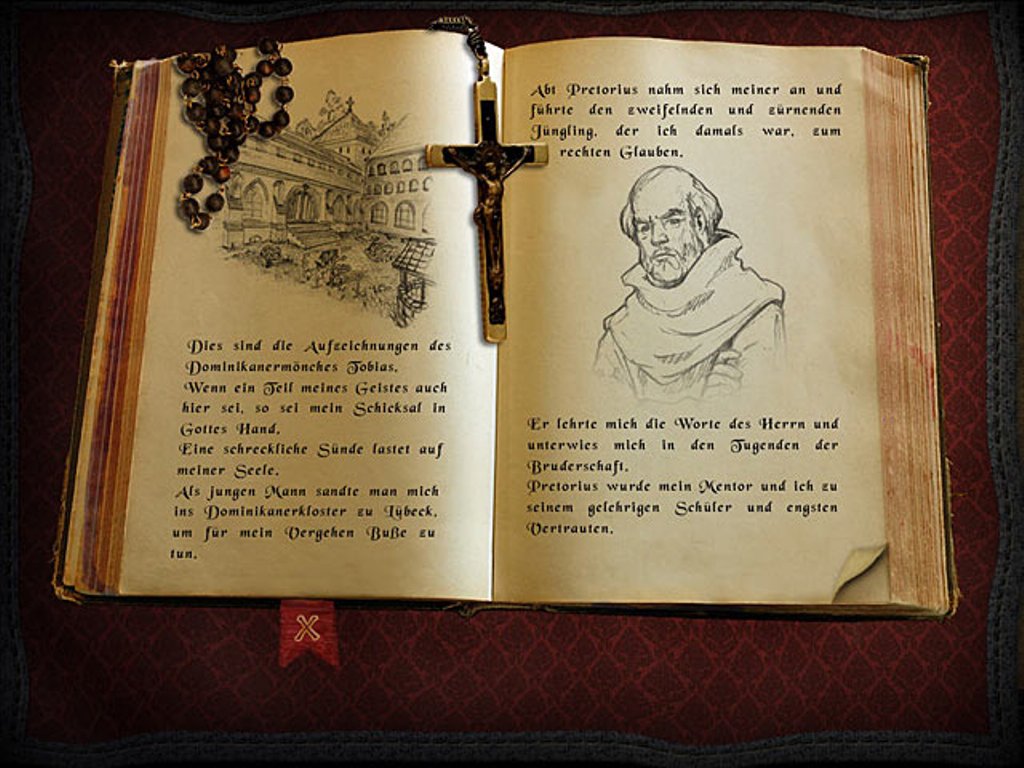 Dies sind die Aufzeichnungen des
Dominikanermönches Tobias.
Wenn ein Teil meines Geistes auch
hier sei, so sei mein Schicksal in
Gottes Hand.
Eine schreckliche Sünde lastet auf
meiner Seele.
Als jungen Mann sandte man mich
ins Dominikanerkloster zu Lübeck,
um für mein Vergehen Buße zu
tun.
Abt Pretorius nahm sich meiner an und
führte den zweifelnden und zürnenden
Jüngling, der ich damals war, zum
rechten Glauben.
Er lehrte mich die Worte des Herrn und
unterwies mich in den Tugenden der
Bruderschaft.
Pretorius wurde mein Mentor und ich zu
seinem gelehrigen Schüler und engsten
Vertrauten.
X